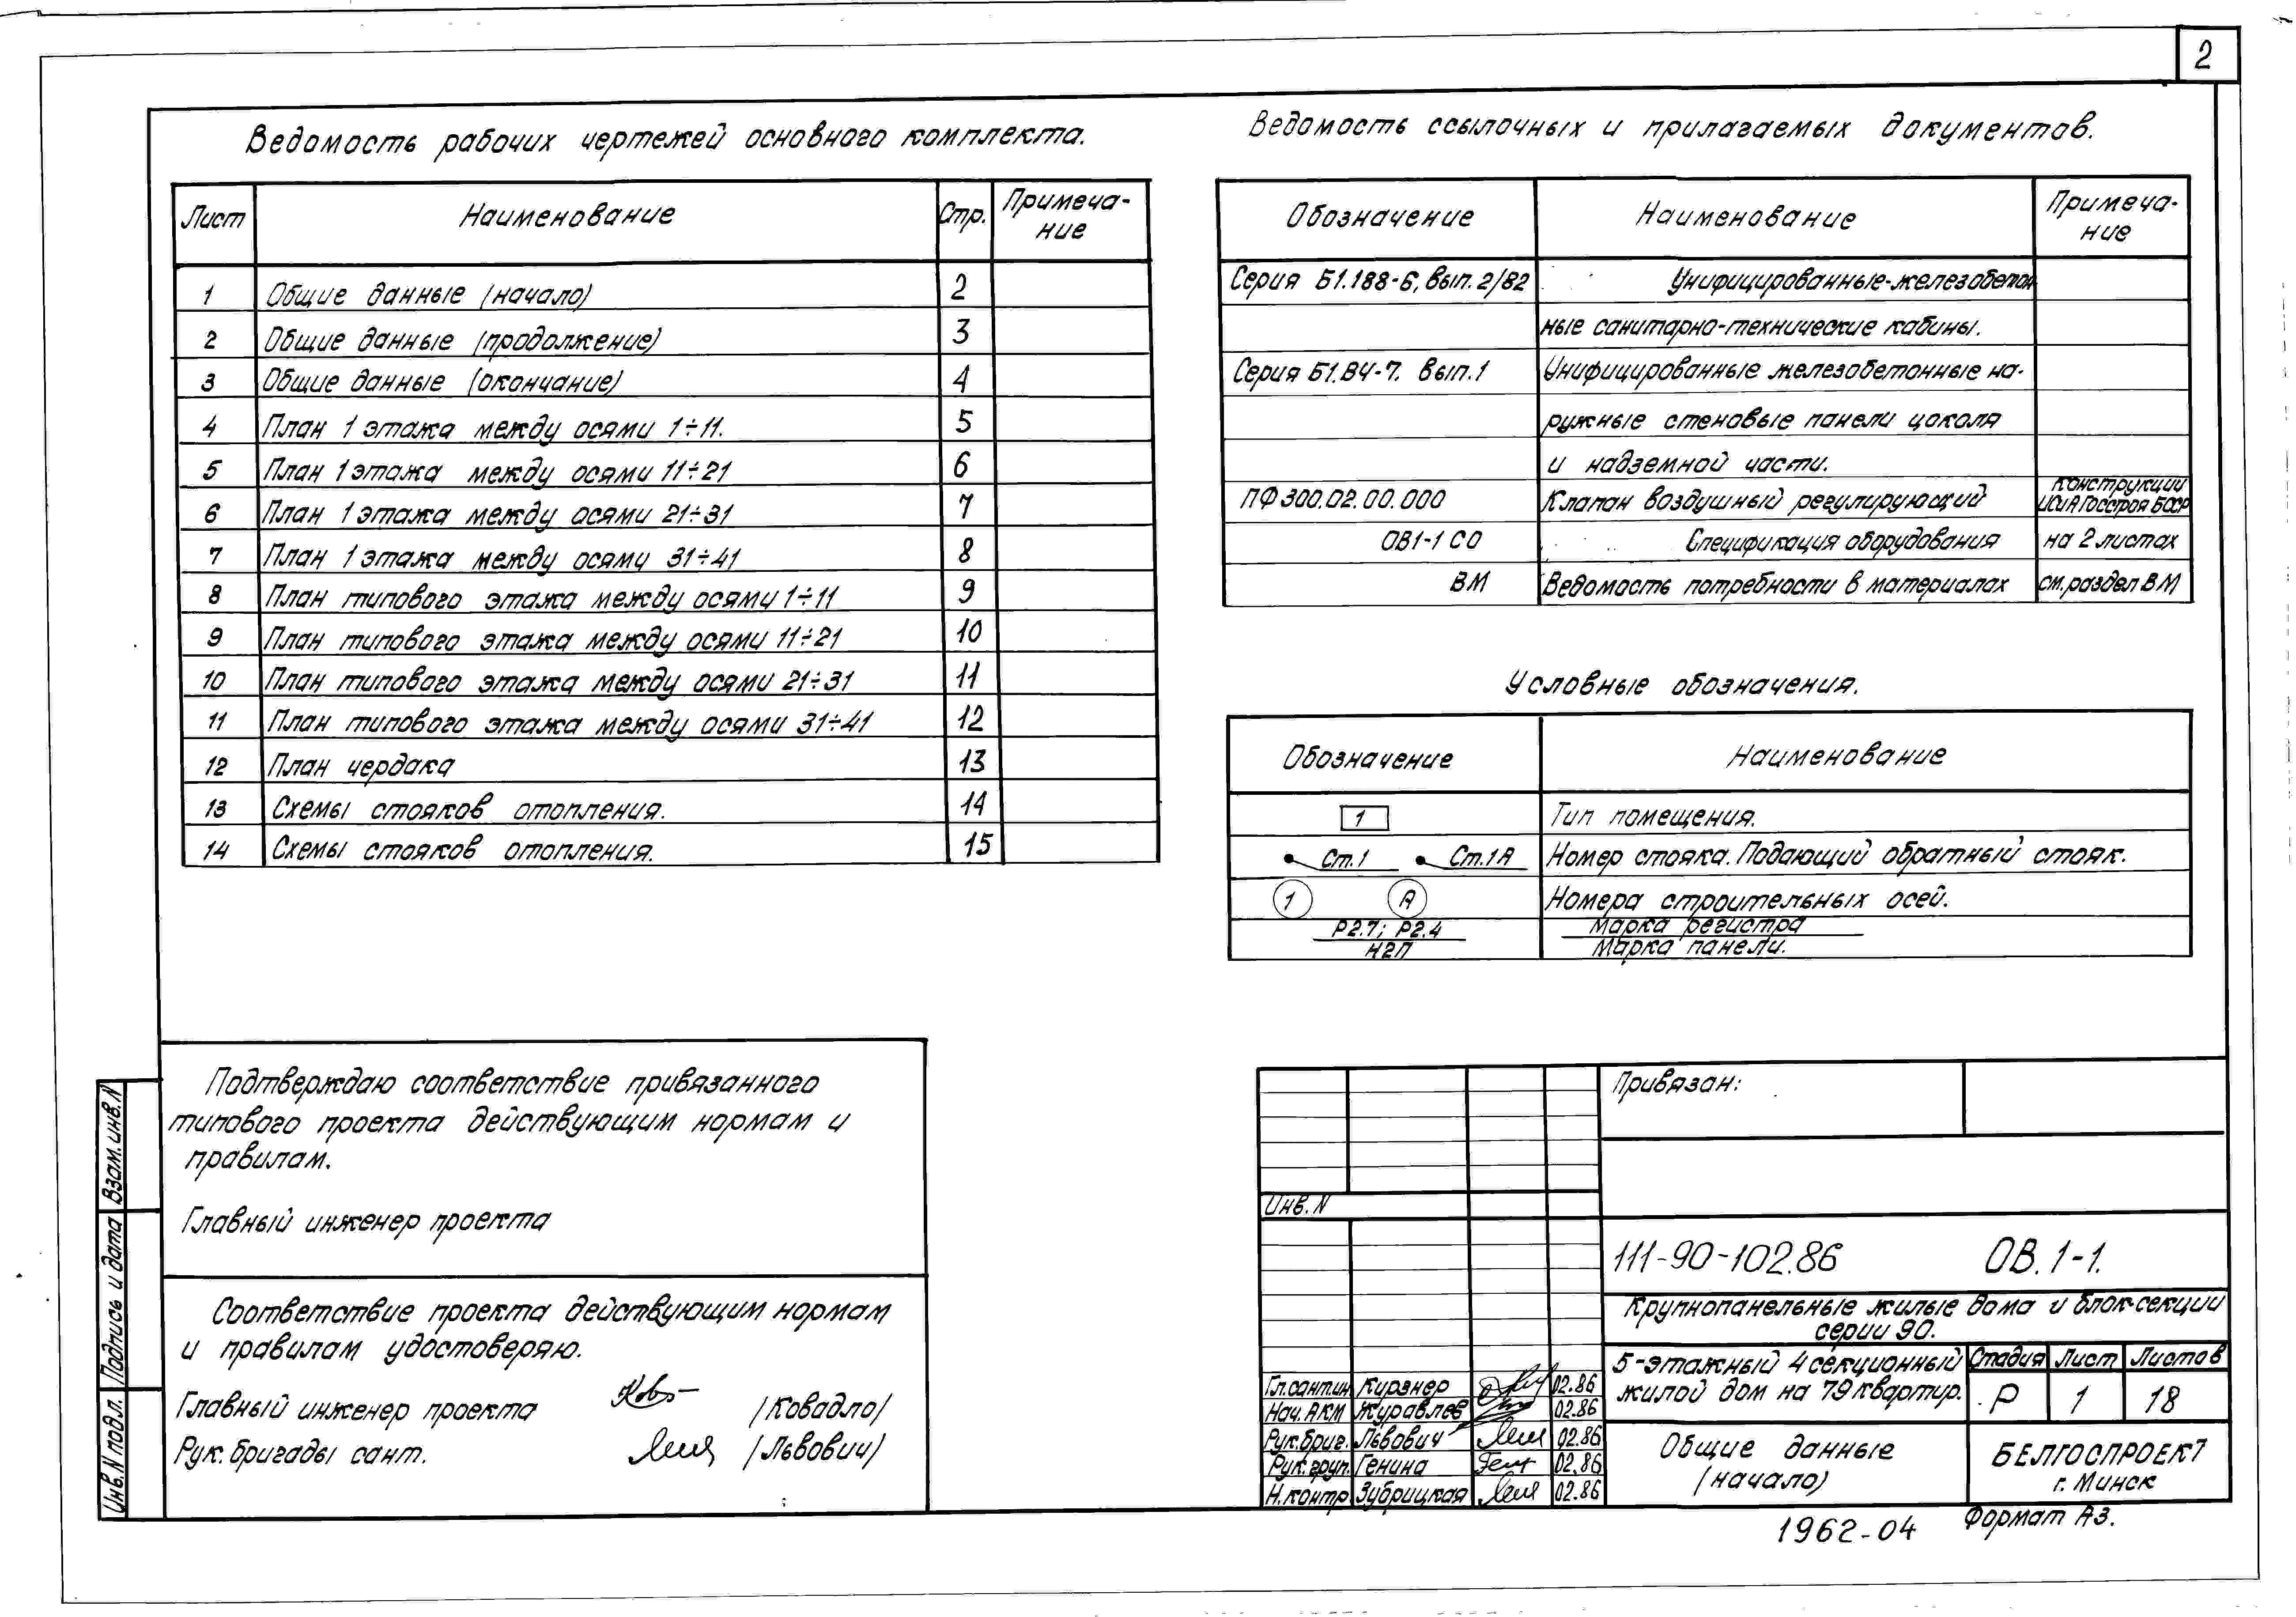 2
Ведомость рабочих чертежей основного комплекта.
Лист Наименование Стр. Примеча-
ние
1 Общие данные (начало) 2
2 Общие данные (продолжение) 3
3 Общие данные (окончание) 4
4 План 1 этажа между осями 1÷11. 5
5 План 1 этажа между осями 11÷21 6
6 План 1 этажа между осями 21÷31 7
7 План 1 этажа между осями 31÷41 8
8 План типового этажа между осями 1÷11 9
9 План типового этажа между осями 11÷21 10
10 План типового этажа между осями 21÷31 11
11 План типового этажа между осями 31÷41 12
12 План чердака 13
13 Схемы стояков отопления. 14
14 Схемы стояков отопления. 15
Ведомость ссылочных и прилагаемых документов.
Обозначение Наименование Примеча-
ние
Серия Б1.188-6, вып. 2/82 Унифицированные-железобетон
ные санитарно-технические кабины.
Серия Б1.В4-7. вып.1 Унифицированные железобетонные на-
ружные стеновые панели цоколя
и надземной части.
ПФ 300.02.00.000 Клапан воздушный регулирующий конструкции
ИСиА Госстроя БССР
ОВ1-1 СО Спецификация оборудования на 2 листах
ВМ Ведомость потребности в материалах см. раздел ВМ
Условные обозначения.
Обозначение Наименование
1 Тип помещения.
Ст.1 Ст.1А Номер стояка. Подающий обратный стояк.
1 А Номера строительных осей.
Р2.7; Р2.4 Марка регистра
Н2П Марка панели.
Подтверждаю соответствие привязанного
типового проекта действующим нормам и
правилам.
Главный инженер проекта
Соответствие проекта действующим нормам
и правилам удостоверяю.
Главный инженер проекта /Ковадло/
Рук. бригады сант. /Львович/
Взам. инв. N
Подпись и дата
Инв. N подл.
Привязан:
Инв. N
111-90-102.86 ОВ. 1-1.
Крупнопанельные жилые дома и блок-секции
серии 90.
5-этажный 4 секционный
жилой дом на 79 квартир.
Стадия Лист Листов
Р 1 18
Гл. сантин. Курзнер 02.86
Нач. АКМ Журавлев 02.86
Рук. бриг. Львович 02.86
Рук. груп. Генина 02.86
Н. контр Зубрицкая 02.86
Общие данные
(начало)
БЕЛГОСПРОЕКТ
г. Минск
1962-04 Формат А3.